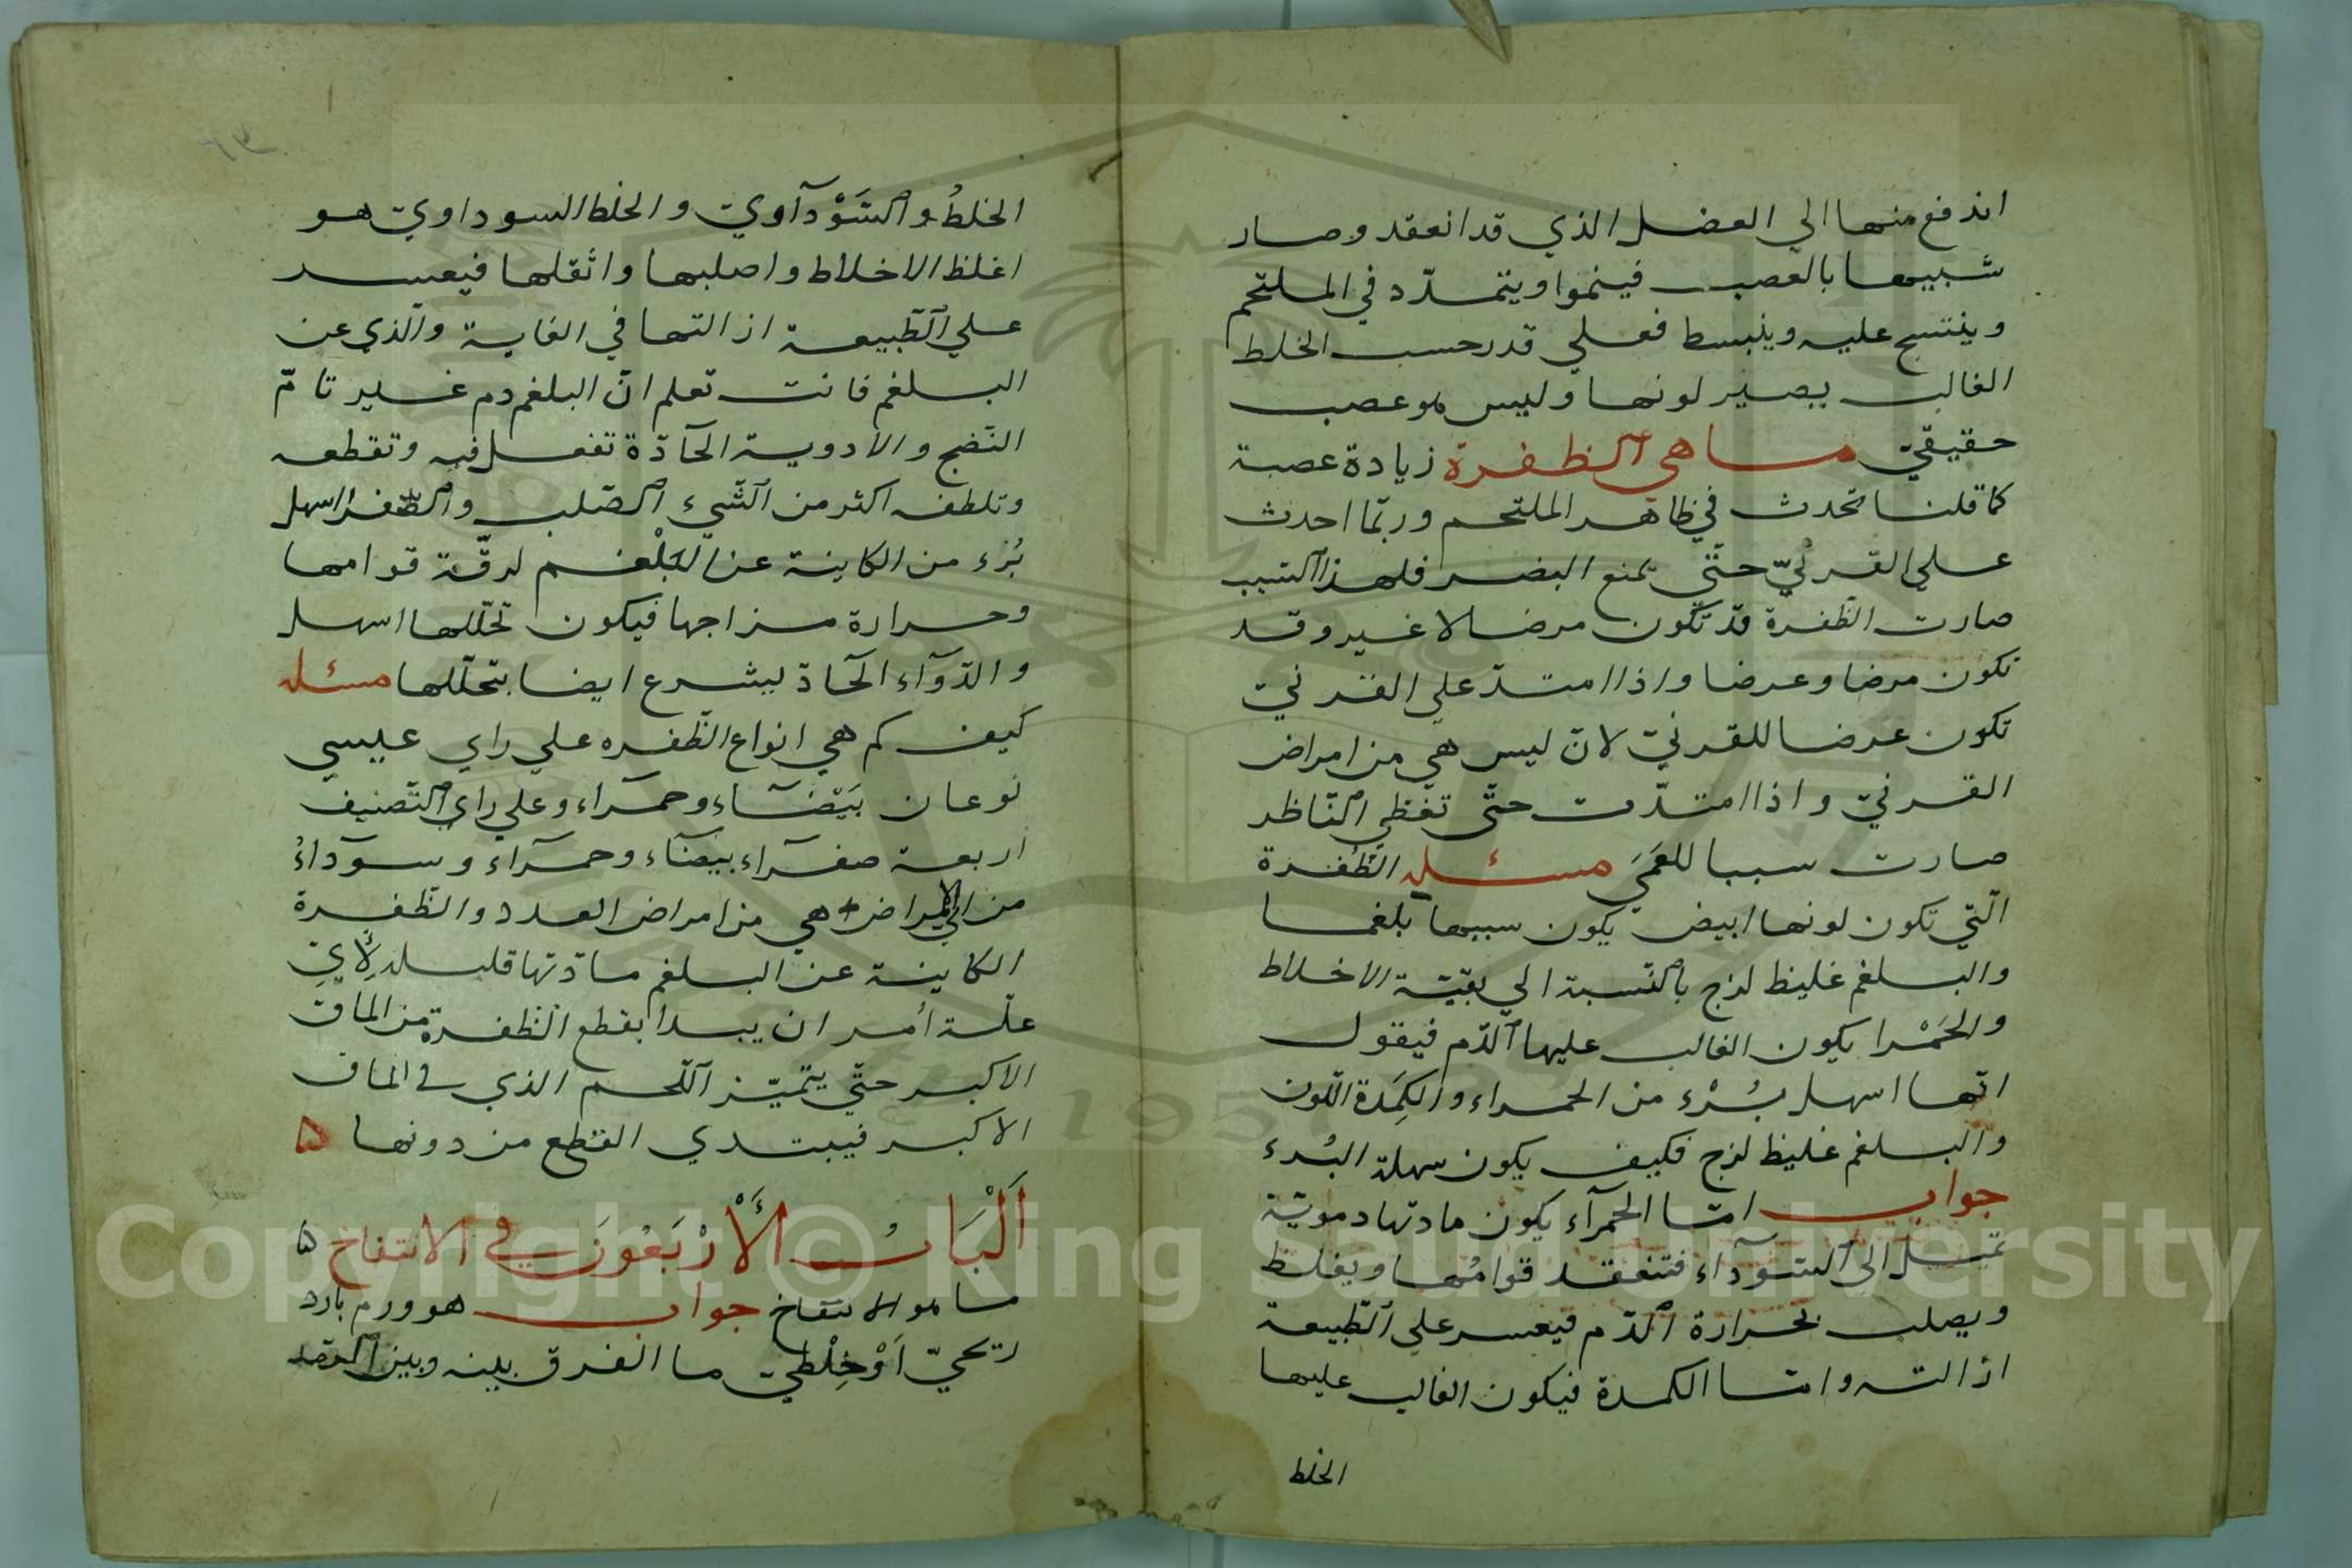 اندفع منها الي العضل الذي قد انعقد وصار
شبيها بالعصب فينموا ويتمدّد في الملتحم
وينتسج عليه وينبسط فعلي قدر حسب الخلط
الغالب يصير لونها وليس هو عصب
حقيقيّ ما هي الظفرة زيادة عصبة
كما قلنا تحدث في ظاهر الملتحم وربّما احدث
علي القرنيّ حتّي يمنع البصر فلهذا السّبب
صارت الظّفرة قد تكون مرضا لا غير وقد
تكون مرضا وعرضا واذا امتدّ علي القرنيّ
تكون عرضا للقرنيّ لانّ ليس هي من امراض
القرنيّ واذا امتدّت حتّي تغطّي النّاظر
صارت سببا للعَمَي مسئله الظّفرة
الّتي تكون لونها ابيض يكون سببها بلغما
والبلغم غليظ لزج بالنّسبة الي بقيّة الاخلاط
والحَمْرا يكون الغالب عليها الدّم فيقول
انّها اسهل بُرْء من الحمراء والكَمِدَة اللّون
والبلغم غليظ لزج فكيف يكون سهلة البُرء
جواب امّا الحمرآء يكون مادتها دمويّة
تميل الي السّودآء فتنعقد قوامُها ويغلظ
ويصلب بحرارة الدّم فيعسر علي الطّبيعة
ازالته وامّا الكمدة فيكون الغالب عليها
الخلط
الخلطُ والسَّوْدآوي والخلط السوداويّ هو
اغلظ الاخلاط واصلبها واثقلها فيعسر
علي الطّبيعة ازالتها في الغاية والّذي عن
البلغم فانت تعلم انّ البلغم دم غير تامّ
النّضج والادوية الحآدّة تفعل فيه وتقطعه
وتلطفه اكثر من الشّيء الصّلب والصّفرا اسهل
بُرْء من الكاينة عن البَلْغم لرقّة قوامها
وحرارة مزاجها فيكون تحلّلها اسهل
والدّوآء الحآدّ ليشرع ايضا بتحلّلها مسئله
كَيف كم هي انواع الظّفره علي راي عيسي
نوعان بَيْضَآء وحمرآء وعلي راي التّصنيف
اربعة صفرآء بيضآء وحمرآء وسودآءُ
من الامراض هي من امراض العدد والظّفرة
الكاينة عن البلغم مادّتها قليله لِأَيّ
علّة أُمر ان يبدأ بقطع الظّفرة من الماق
الاكبر حتّي يتميّز اللّحم الذي في الماق
الاكبر فيبتدي القطع من دونها ۵
اَلْبَابُ الأَرْبَعُونَ في الانتفاخ ۵
ما هو الانتفاخ جواب هو ورم بارد
ريحيّ اَوْ خِلْطيّ ما الفرق بينه وبين